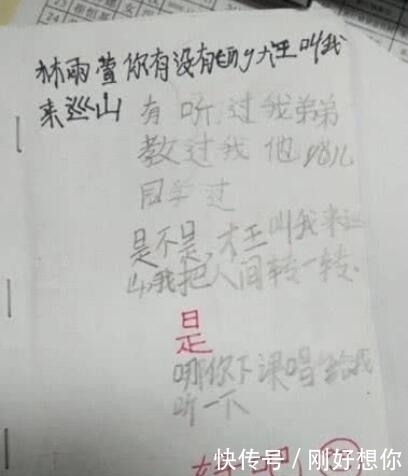 林雨萱你有没有听过大王叫我
来巡山
有听过我弟弟
教过我他
同学过
是不是,大王叫我来巡
山我把人间转一转.
是
哪你下课唱给我
听一下
好吧
快传号/刚好想你